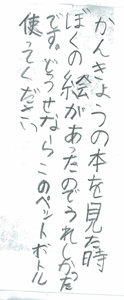 かんきょうの本を見た時
ぼくの絵があったのでうれしかった
です。どうせなら このペットボトル
使ってください